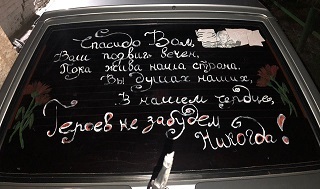 Спасибо Вам,
Ваш подвиг вечен.
Пока жива наша страна.
Вы душах наших,
В нашем сердце,
Героев не забудем
Никогда!